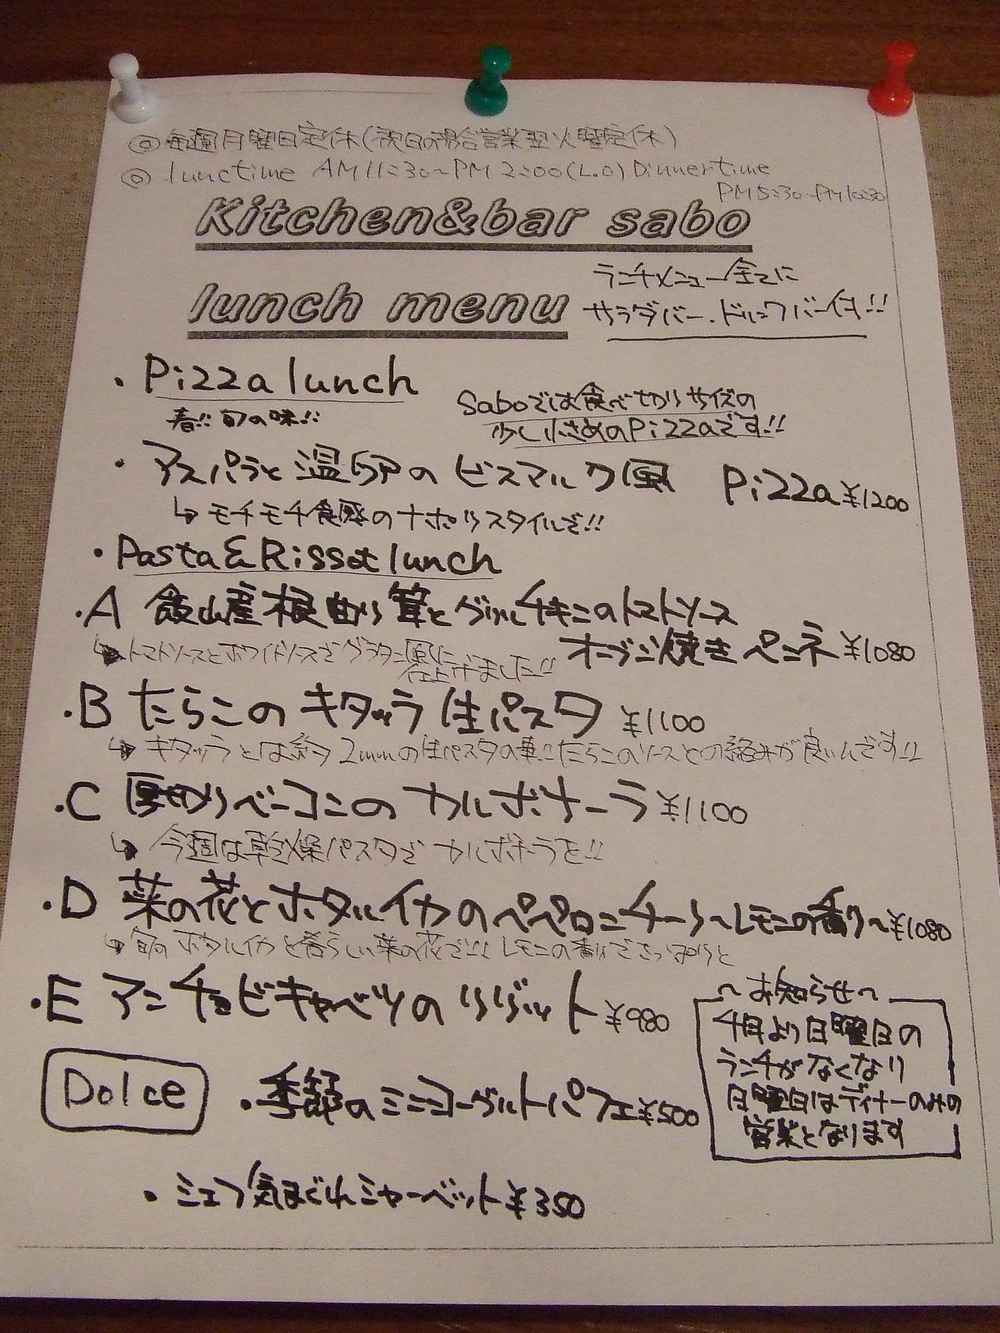 ◎毎週月曜日定休(祝日の場合営業翌火曜定休)
◎lunctime AM11:30~PM2:00(L.O) Dinnertime
PM5:30~PM10:30
Kitchen&bar sabo
lunch menu
ランチメニュー全てに
サラダバー、ドリンクバー付!!
・Pizza lunch
春!!旬の味!!
Saboでは食べきりサイズの
少し小さめのPizzaです!!
・アスパラと温卵のビスマルク風 Pizza ¥1200
↳モチモチ食感のナポリスタイルで!!
・Pasta&Rissot lunch
・A 飯山産根曲り茸とグリルチキンのトマトソース
オーブン焼きペンネ ¥1080
↳トマトソースとホワイトソースでグラタン風に
仕上げました!!
・B たらこのキタッラ生パスタ ¥1100
↳キタッラとは約2mmの生パスタの事!!たらこのソースとの絡みが良いんです!!
・C 厚切りベーコンのカルボナーラ ¥1100
↳今週は乾燥パスタでカルボナーラを!!
・D 菜の花とホタルイカのペペロンチーノ~レモンの香り~ ¥1080
↳旬のホタルイカと春らしい菜の花で!! レモンの香りでさっぱりと
・E アンチョビキャベツのリゾット ¥980
~お知らせ~
より日曜日の
ランチがなくなり
日曜日はディナーのみの
営業となります
Dolce
・季節のミニヨーグルトパフェ ¥500
・シェフ気まぐれシャーベット ¥350